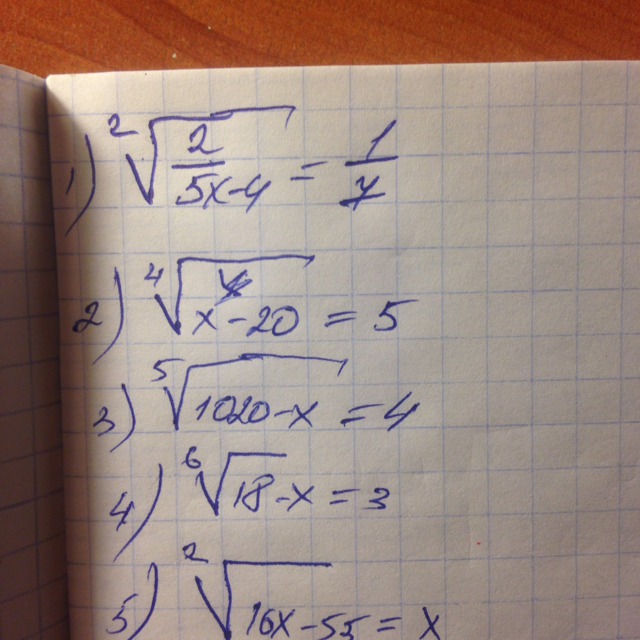 1) ²√(2/(5x-4)) = 1/7
2) ⁴√(x-20) = 5
3) ⁵√(1020-x) = 4
4) ⁶√(18-x) = 3
5) ²√(16x-55) = x